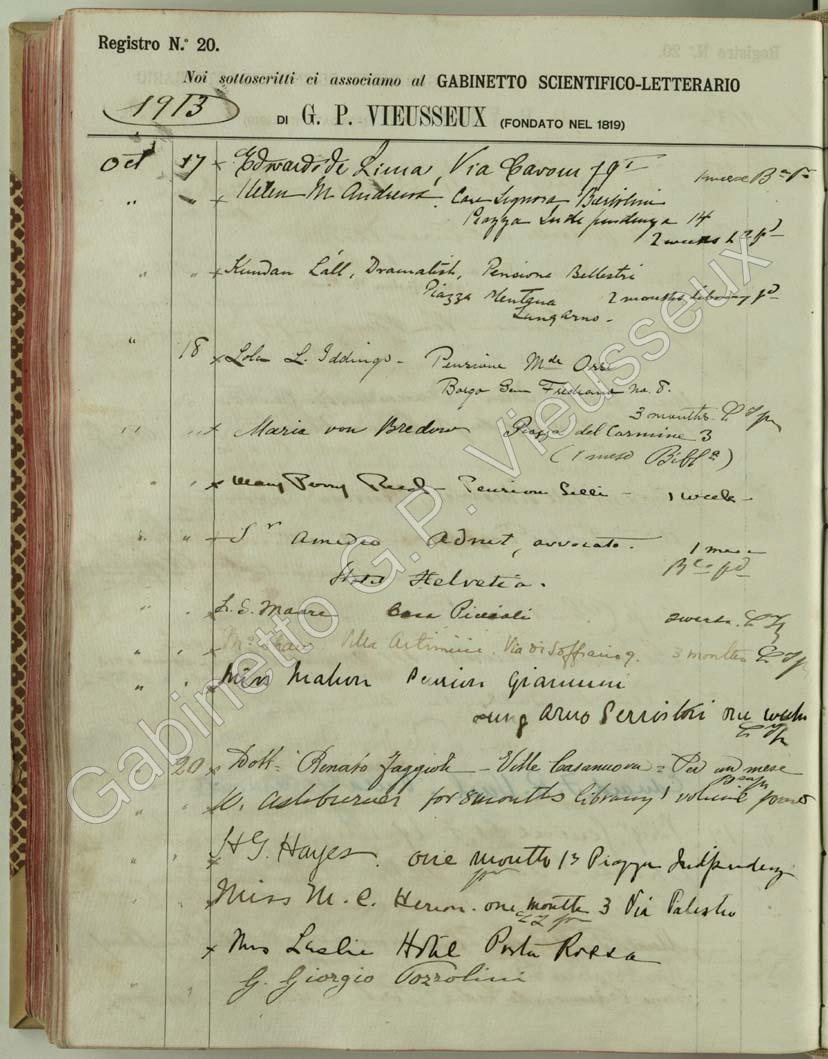 Registro N.° 20.
Noi sottoscritti ci associamo al GABINETTO SCIENTIFICO-LETTERARIO
1913
DI G. P. VIEUSSEUX (FONDATO NEL 1819)
Oct 17 x Edwardo de Lima, Via Cavour
" " Helen M Andrews. Care Signora Bertolini
Piazza Independenza 14
2 weeks
" " x Kundan Láll, Dramatist, Pensione Bellestri
Piazza Mentana 2 months library pd
Lungarno -
" 18 x Lola L. Iddings - Pensione Mde
Borgo San Frediano no. 8.
3 months
" " x Maria von Bredow Piazza del Carmine 3
(1 mese Bibla)
" " x Mary Perry Reed - Pension - 1 week -
" " - Sr Amedeo Adnet, avvocato. 1 mese
Hotel Helvetia.
" " x Moore Casa Piccioli
" " Villa 3 months
" " x Miss Mahon Pension Giannini
Lung Arno Serristori one week
20 x Dott. Renato - Ville Casanuova = Per un mese
" " x Ashburner for 8 months library 1 volume
" " x H G. Hayes. one month 13 Piazza Indipendenza
x Miss M. C. Heron. one month 3 Via Palestro
x Mrs Leslie Hotel Porta Rossa
G. Giorgio Pozzolini
Gabinetto G.P. Vieusseux